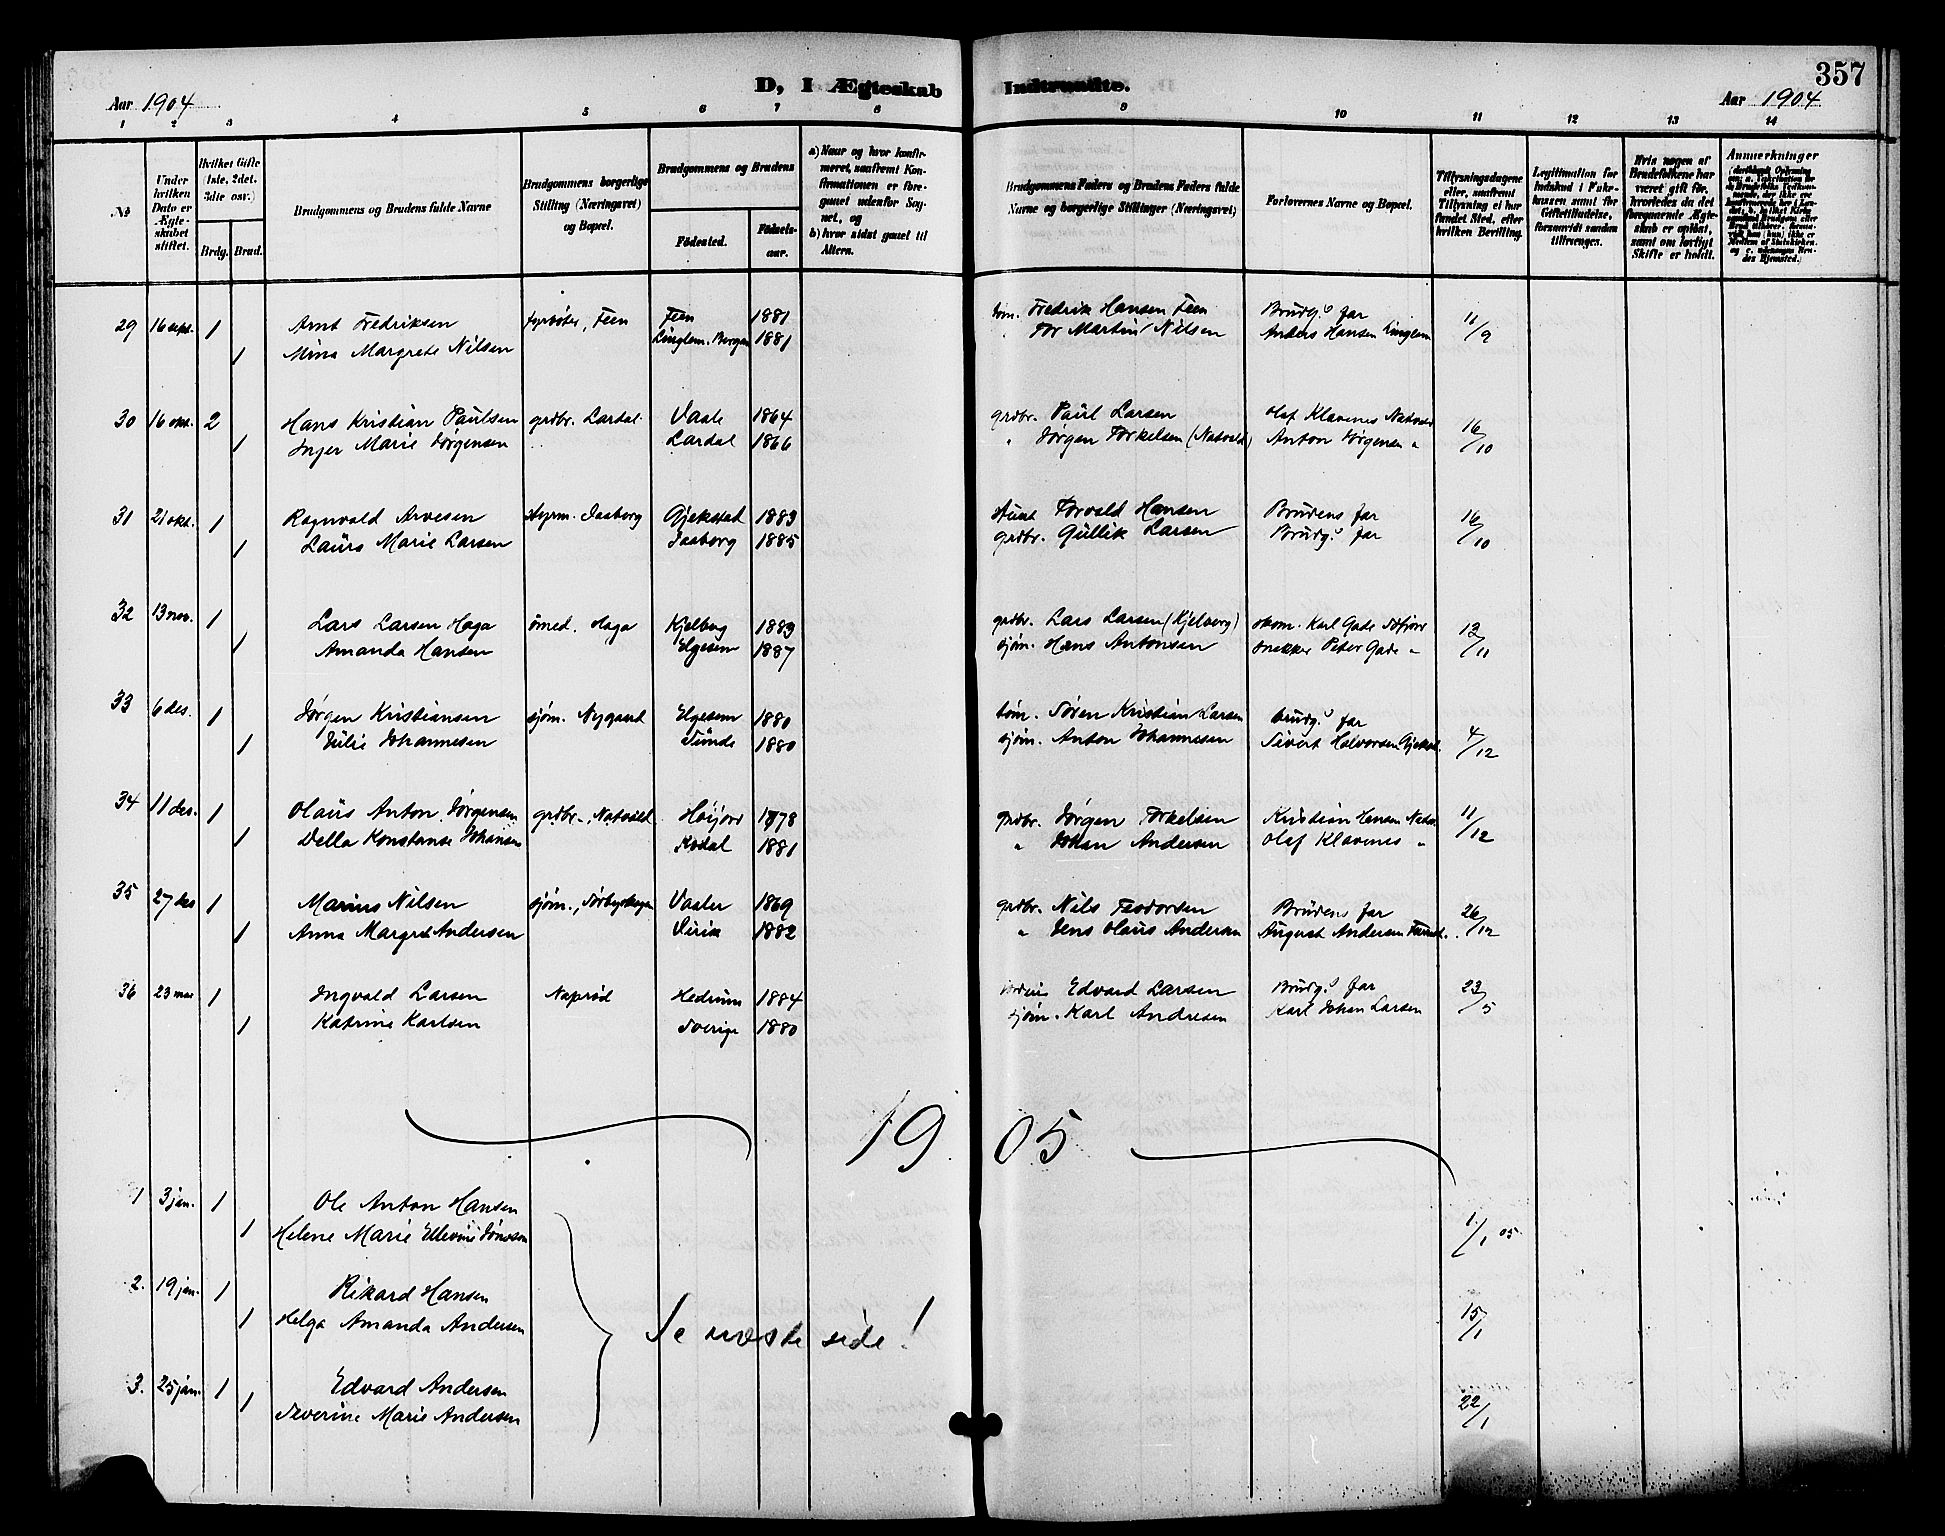 357
D, I Ægteskab Indtraadte.
Aar 1904
Aar 1904
1 2 3 4 5 6 7 8 9 10 11 12 13 14
No
Under hvilken Dato er Ægteskabet stiftet.
Hvilket Gifte (1ste, 2det, 3die osv.)
Brdg. Brud.
Brudgommens og Brudens fulde Navne
Brudgommens borgerlige Stilling (Næringsvei) og Bopæl.
Brudgommens og Brudens
Fødested.
Fødselsaar.
a) Naar og hvor konfirmeret, naafremt Konfirmationen er foregaaet udenfor Sognet, og
b) hvor sidst gaaet til Alters.
Brudgommens Faders og Brudens Faders fulde Navne og borgerlige Stillinger (Næringsvei)
Forlovernes Navne og Bopæl.
Tillysningsdagene eller, naafremt Tillysning ei har fundet Sted, efter hvilken Bevilling.
Legitimation for Indskud i Fakrkassen samt for Giftetilladelse, forsaavidt saadan tiltrænges.
Hvis nogen af Brudefolkene har været gift før, hvorledes da det foregaaende Ægteskab er opløst, samt om lovligt Skifte er holdt.
Anmerkninger
29 16 sept. 1 Arnt Fredriksen fyrbøter, Feen Feen 1881 tøm. Fredrik Hansen Feen Brudg.s far 11/9
1 Mina Margrete Nilsen Linglem, Bergan 1881 " Tor Martin Nilsen Anders Hansen Linglem
30 16 okt. 2 Hans Kristian Paulsen grdbr. Lardal Vaale 1864 grdbr. Paul Larsen Olaf Klavenes Natvald 16/10
1 Inger Marie Jørgensen Lardal 1866 " Jørgen Torkelsen (Natvald) Anton Jørgensen "
31 21 okt. 1 Ragnvald Arvesen styrm. Saaborg Gjekstad 1883 Torvald Hansen Brudens far 16/10
1 Laura Marie Larsen Saaborg 1885 grdbr. Gullik Larsen Brudg.s far
32 13 nov. 1 Lars Larsen Haga smed. Haga Kjelberg 1883 grdbr. Lars Larsen (Kjelberg) skom. Karl Gade 13/11
1 Amanda Hansen Elgesem 1887 sjøm. Hans Antonsen snekker Peter Gade "
33 6 des. 1 Jørgen Kristiansen sjøm. Nygaard Elgesem 1880 tøm. Søren Kristian Larsen brudg.s far 4/12
1 Julie Johannesen Sunde 1880 sjøm. Anton Johannesen Sivert Halvorsen Gjekst.
34 11 des. 1 Olaus Anton Jørgensen grdbr., Natvald Høijord 1878 grdbr. Jørgen Torkelsen Kristian Hansen Natv. 11/12
1 Della Konstanse Johansen Kodal 1881 " Johan Andersen Olaf Klavenes "
35 27 des 1 Marius Nilsen sjøm., Sørbyskogen Vaaler 1869 grdbr. Nils Teodorsen Brudens far 26/12
1 Anna Margret Andersen Virik 1882 " Jens Olaus Andersen August Andersen
36 23 mai 1 Ingvald Larsen Naprød Hedrum 1884 Edvard Larsen Brudg.s far 23/5
1 Katrine Karlsen Sverige 1880 sjøm. Karl Andresen Karl Johan Larsen
1905
1 3 jan. 1 Ole Anton Hansen
1 Helene Marie Ellevine Jonsson 1/1 05.
2. 19 jan. 1 Rikard Hansen 15/1
1 Helga Amanda Andersen
Se næste side!
3. 25 jan. 1 Edvard Andersen 22/1
1 Severine Marie Andersen